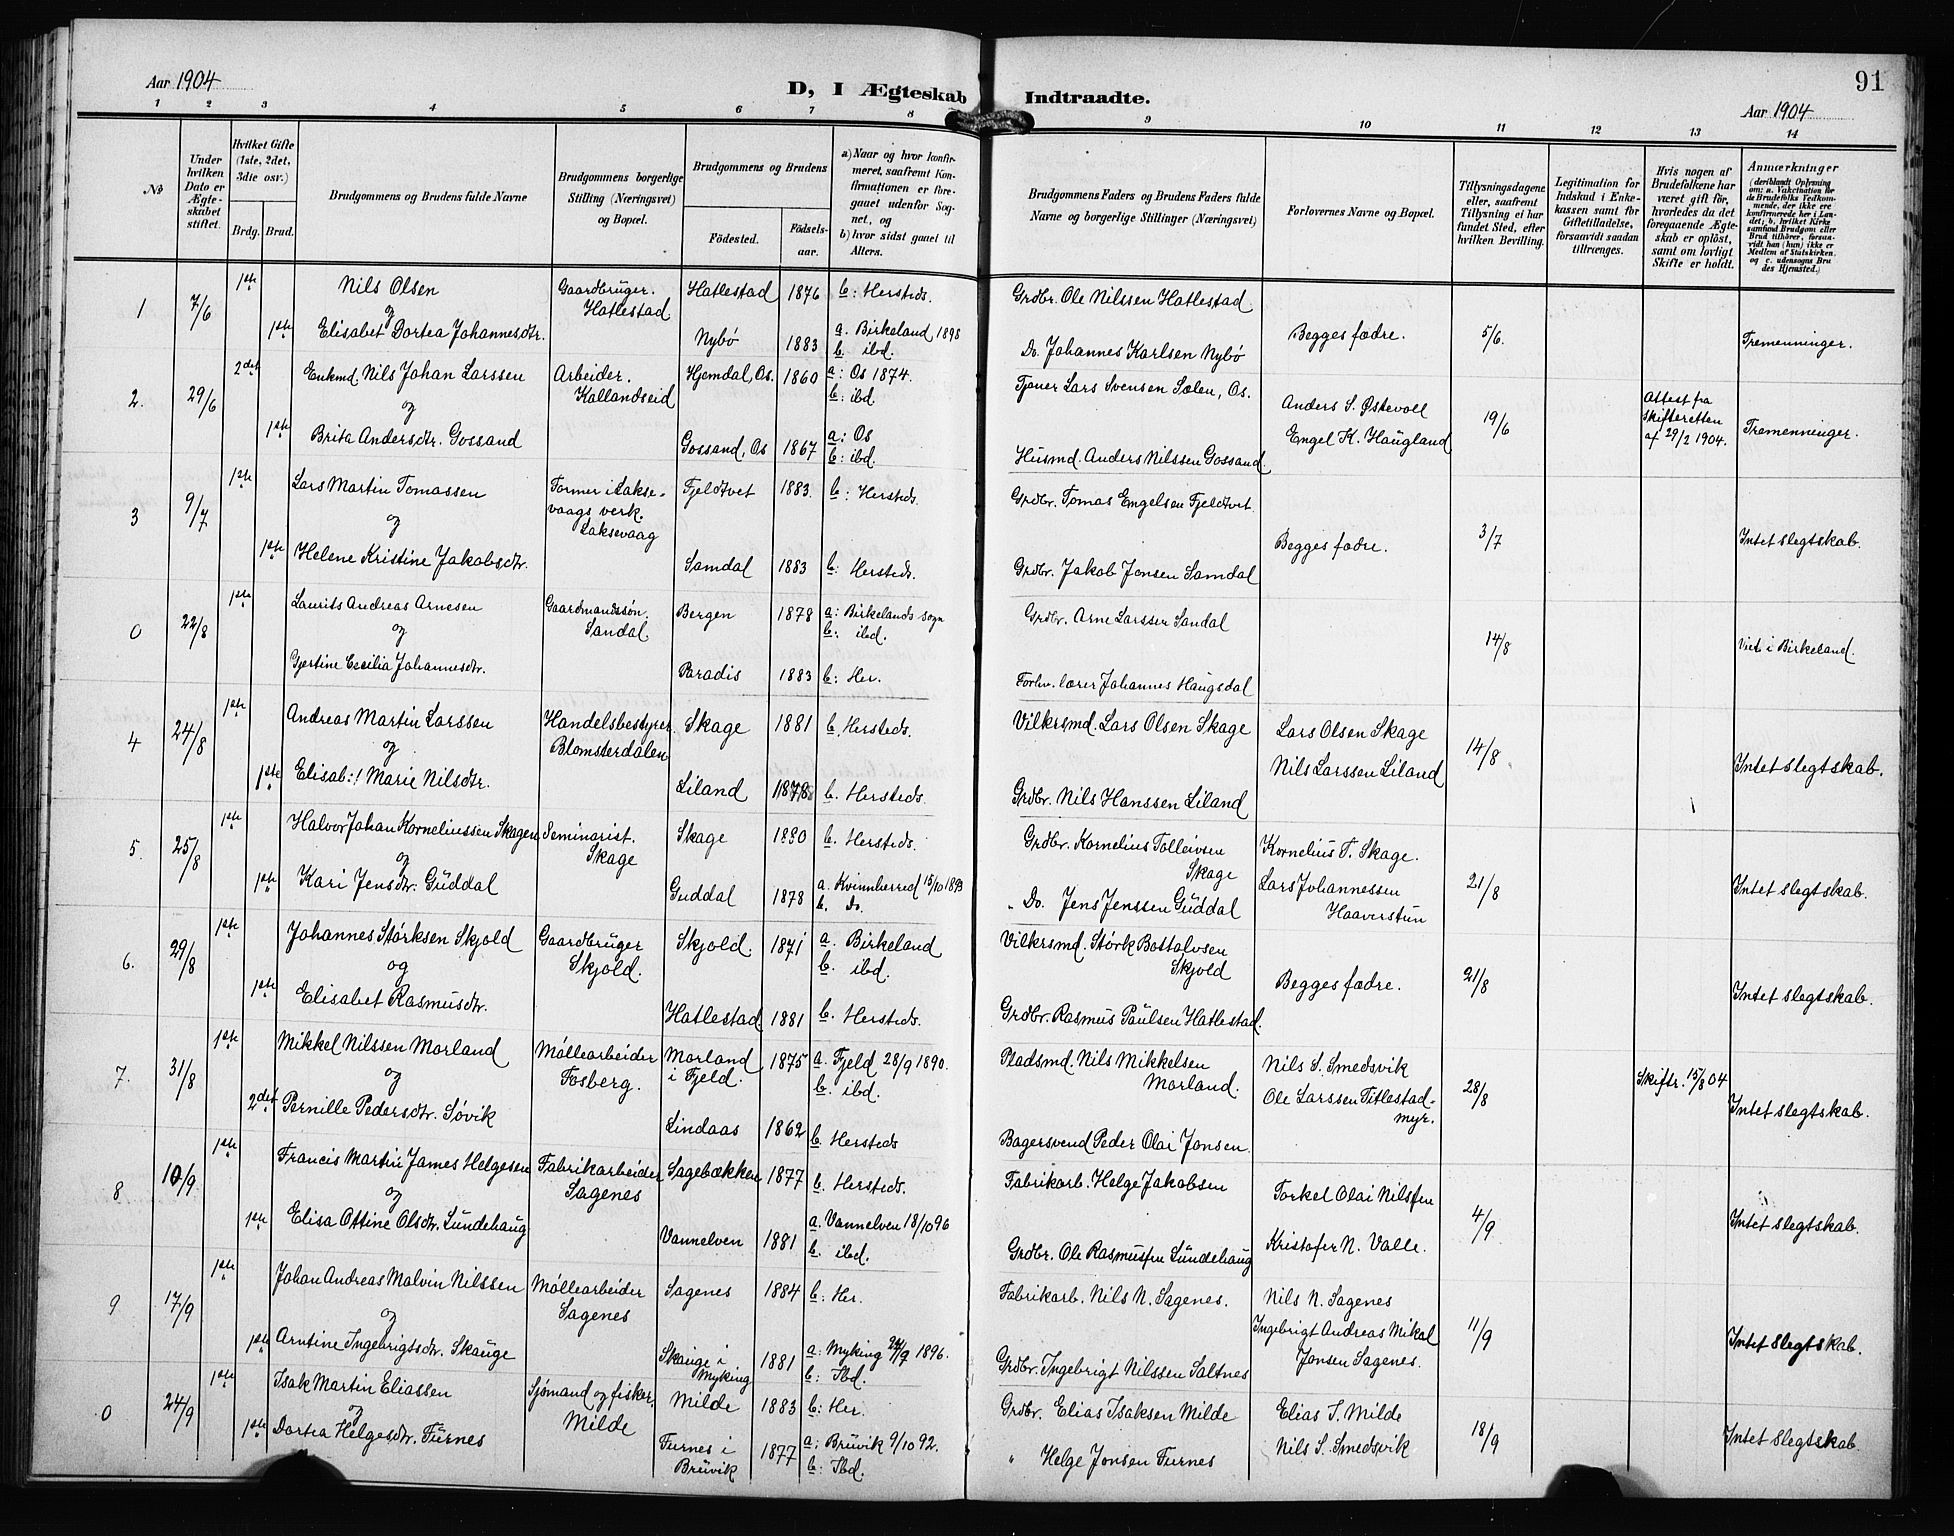 91
Aar 1904
D, I Ægteskab Indtraadte.
Aar 1904
1 2 3 4 5 6 7 8 9 10 11 12 13 14
No
Under hvilken Dato er Ægteskabet stiftet.
Hvilket Gifte (1ste, 2det, 3die osv.)
Brdg. Brud.
Brudgommens og Brudens fulde Navne
Brudgommens borgerlige Stilling (Næringsvei) og Bopæl.
Brudgommens og Brudens
Fødested. Fødselsaar.
a) Naar og hvor konfirmeret, saafremt Konfirmationen er foregaaet udenfor Sognet, og
b) hvor sidst gaaet til Alters.
Brudgommens Faders og Brudens Faders fulde Navne og borgerlige Stillinger (Næringsvei)
Forlovernes Navne og Bopæl.
Tillysningsdagene eller, saafremt Tillysning ei har fundet Sted, efter hvilken Bevilling.
Legitimation for Indskud i Enkekassen samt for Giftetilladelse, forsaavidt saadan tiltrænges.
Hvis nogen af Brudefolkene har været gift før, hvorledes da det foregaaende Ægteskab er opløst, samt om lovligt Skifte er holdt.
Anmærkninger (deriblandt Oplysning om: a. Vakcination for de Brudefolks Vedkommende, der ikke ere konfirmerede her i Landet; b. hvilket Kirkesamfund Brudgom eller Brud tilhører, forsaavidt han (hun) ikke er Medlem af Statskirken, og c. udensogns Brudes Hjemsted.)
1 7/6 1ste Nils Olsen Gaardbruger. Hatlestad Hatlestad 1876 b: Hersteds. Grdbr. Ole Nilssen Hatlestad
og
1ste Elisabet Dortea Johannesdtr. Nybø 1883 a. Birkeland 1898 b. ibd. Do. Johannes Karlsen Nybø Begges fædre. 5/6. Tremenninger.
2. 29/6 2det Enkmd. Nils Johan Larssen Arbeider. Kallandseid Hjemdal, Os. 1860 a: Os 1874. b: ibd. Tjener Lars Svensen Sælen, Os.
og
1ste Brita Andersdtr. Gossand Gossand, Os 1867 a: Os b: ibd. Husmd. Anders Nilssen Gossand. Anders S. Østevoll Engel K. Haugland 19/6 Attest fra skifteretten af 29/2 1904. Tremenninger.
3 9/7 1ste Lars Martin Tomassen Former i Laksevaags verk. Laksevaag Fjeldtvet 1883. b: Hersteds. Grdbr. Tomas Engelsen Fjeldtvet
og
1ste Helene Kristine Jakobsdtr. Samdal 1883 b: Hersteds. Grdbr. Jakob Jonsen Samdal Begges fædre. 3/7 Intet slegtskab.
0 22/8 1ste Laurits Andreas Arnesen Gaardmandssøn. Sandal Bergen 1878 a: Birkelands sogn b: ibd. Grdbr. Arne Larssen Sandal
og
Gjertine Cecilia Johannesdtr. Paradis 1883 b: Her. Forhv. lærer Johannes Haugsdal 14/8 Viet i Birkeland.
4 24/8 1ste Andreas Martin Larssen Handelsbestyrer Blomsterdalen Skage 1881 b. Hersteds. Vilkrsmd. Lars Olsen Skage
og
1ste Elisab:! Marie Nilsdtr. Liland 1878 b. Hersteds. Grdbr. Nils Hanssen Liland Lars Olsen Skage Nils Larssen Liland 14/8 Intet slegtskab.
5. 25/8 1ste Halvor Johan Korneliussen Skagen Seminarist. Skage Skage 1880 b. Hersteds. Grdbr. Kornelius Tolleivsen Skage
og
1ste Kari Jensdtr. Guddal Guddal 1878 a. Kvinnherred 15/10 1893 b. Do. " Do. Jens Jenssen Guddal Kornelius T. Skage. Lars Johannessen Haaverstun 21/8 Intet slegtskab.
6. 29/8 1ste Johannes Størksen Skjold Gaardbruger Skjold. Skjold. 1871 a. Birkeland b. ibd. Vilkrsmd. Størk Bottolvsen Skjold
og
1ste Elisabet Rasmusdtr. Hatlestad 1881 b. Hersteds. Grdbr. Rasmus Paulsen Hatlestad. Begges fædre. 21/8 Intet slegtskab.
7. 31/8 1ste Mikkel Nilssen Morland Møllearbeider Fosberg. Morland i Fjeld. 1875 a. Fjeld 28/9 1890. b. ibd. Pladsmd. Nils Mikkelsen Morland.
og
2det Pernille Pedersdtr. Søvik Lindaas 1862 b. Hersteds Bagersvend Peder Olai Jonsen. Nils S. Smedsvik Ole Larssen Titlestadmyr. 28/8 Skiftr. 15/8 04 Intet slegtskab.
8 10/9 1ste Francis Martin James Helgesen Fabrikarbeider Sagenes Sagebækken 1877 b. Hersteds. Fabrikarb. Helge Jakobsen
og
1ste Elisa Ottine Olsdtr. Lundehaug Vannelven 1881 a. Vannelven 18/10 96 b. ibd. Grdbr. Ole Rasmussen Lundehaug Torkel Olai Nilssen Kristofer N. Valle. 4/9 Intet slegtskab.
9 17/9 1ste Johan Andreas Malvin Nilssen Møllearbeider Sagenes Sagenes 1884 b: Her. Fabrikarb. Nils N. Sagenes.
og
1ste Arntine Ingebrigtsdtr. Skauge Skauge i Myking 1881 a: Myking 1896. b: Ibd. Grdbr. Ingebrigt Nilssen Saltnes Nils N. Sagenes Ingebrigt Andreas Mikal Jonsen Sagenes. 11/9 Intet slegtskab.
0 24/9 1ste Isak Martin Eliassen Sjømand og fisker, Milde Milde 1883 b: Her. Grdbr. Elias Isaksen Milde
og
1ste Dortea Helgesdtr. Furnes Furnes i Bruvik 1877 a: Bruvik 9/10 92. b: Ibd. " Helge Jonsen Furnes Elias I. Milde Nils S. Smedsvik 18/9 Intet slegtskab.